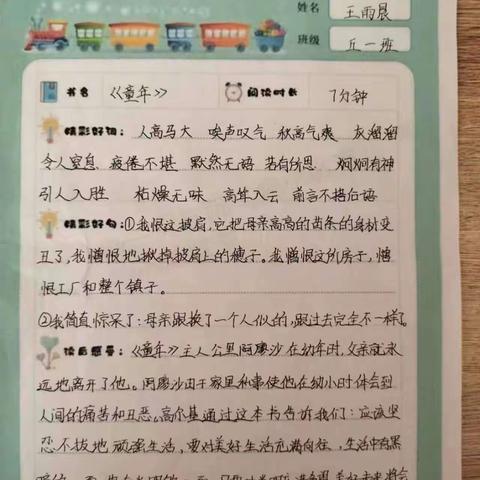 姓名 王雨晨
班级 五一班
书名 《童年》 阅读时长 7分钟
精彩好词: 人高马大 唉声叹气 秋高气爽 灰溜溜
令人窒息 疲倦不堪 默然无语 若有所思 炯炯有神
引人入胜 枯燥无味 高耸入云 前言不搭后语
精彩好句:①我恨这披肩,它把母亲高高的齿条的身材变
丑了,我憎恨地揪掉披肩上的穗子。我憎恨这所房子,憎
恨工厂和整个镇子。
②我简直惊呆了:母亲跟换了一个人似的,跟过去完全不一样了。
读后感号:《童年》主人公里阿廖沙在幼年时,父亲就永
远地离开了他。阿廖沙由于家里私事使他在幼小时体会到
人间的痛苦和丑恶。高尔基通过这本书告诉我们:应该坚
忍不拔地顽强生活,要对美好生活充满向往,生活中有黑